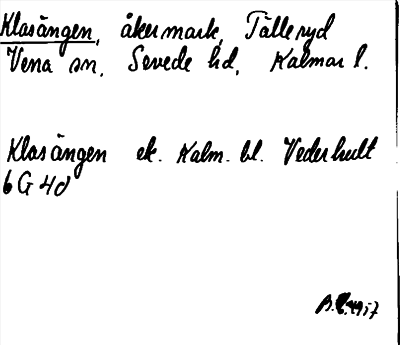 Klasängen, åkermark, Tälleryd
Vena sn, Sevede hd, Kalmar l.
Klasängen ek. Kalm. bl. Vederhult
6 G 4 d